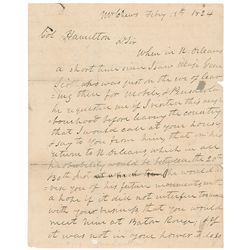 McCrews Feby 15th 1824
Col Hamilton
D Sir
When in N. Orleans
a short time since I saw Maj Genl
Scott who was just on the eve of leav
ing there for Mobile & Pensacola
he requested me if I visited this neigh
bourhood before leaving the country
that I would call at your house
& say to you from him, that on his
return to N. Orleans which in all
probability would be between the 20th
& 30th he would
see you of his future movements with
a hope if it did not interfere too much
with your business that you would
meet him at Baton Rouge & if
it was not in your power to